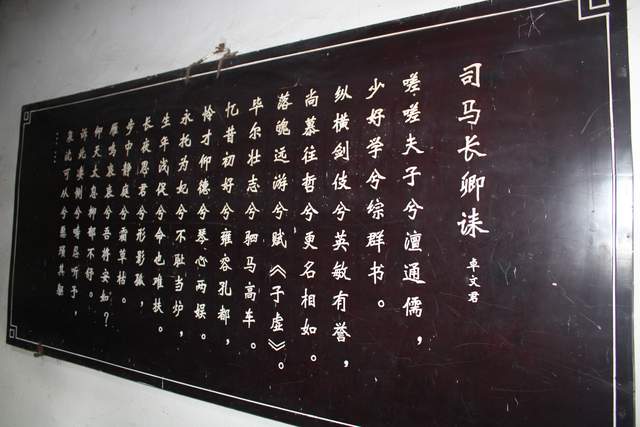 司马长卿诔
卓文君
嗟嗟夫子兮亶通儒，
少好学兮综群书。
纵横剑伎兮英敏有誉，
尚慕往哲兮更名相如。
落魄远游兮赋《子虚》。
毕尔壮志兮驷马高车。
忆昔初好兮雍容孔都，
怜才仰德兮琴心两娱。
永托为妃兮不耻当垆，
生年浅促兮命也难扶。
长夜思君兮形影孤，
步中静庭兮霜草枯。
雁鸣哀哀兮吾将安如？
仰天太息抑郁不舒。
诉此凄恻兮畴忍听予，
泉穴可从兮愿殒其躯
……